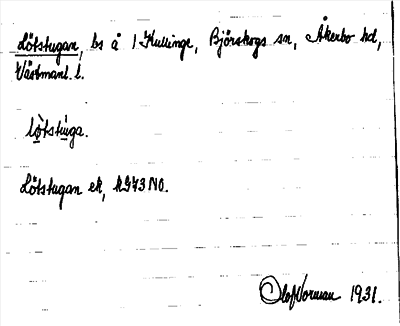 Lötstugan, bs å 1 Kullinge, Björskogs sn, Åkerbo hd,
Västmanl. l.
lø̀tstúga.
Lötstugan ek, kG73NO.
Olof Norman 1931.